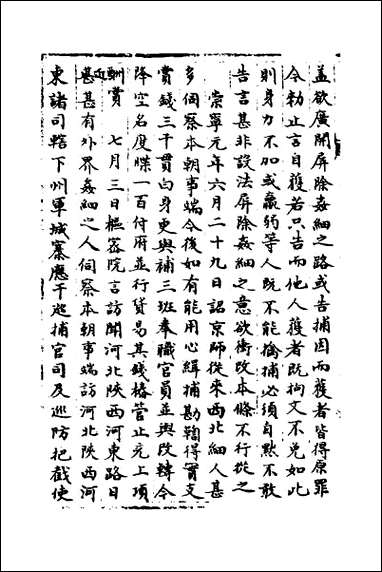 蓋欲廣開屏除姦細之路或告捕因而獲者皆得原罪
今勑止言自獲若只告而他人獲者既拘文不免如此
則身力不加或羸弱等人既不能擒捕必須自黙不敢
告言甚非設法屏除姦細之意欲衝改本條不行從之
崇寧元年六月二十九日詔京師從來西北細人甚
多伺察本朝事端今後如有能用心緝捕勘鞫得實支
賞錢三千貫白身更與補三班奉職官員並與改轉令
降空名度牒一百付府並行貨易其錢樁管止充上項
酬賞 七月三日樞密院言訪聞河北陝西河東路日
近甚有外界姦細之人伺察本朝事端訪河北陝西河
東諸司轄下州軍城寨應干巡捕官司及巡防把截使